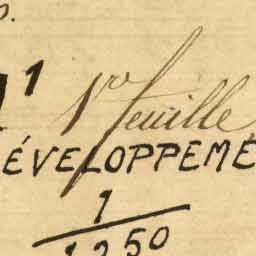 1 1re feuille
ÉVELOPPEME
1
1250